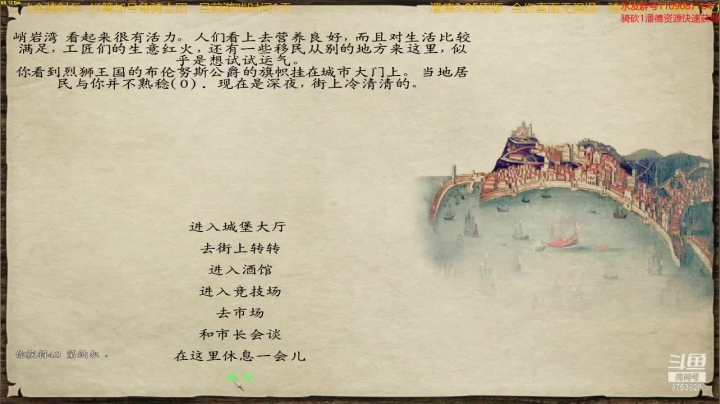 峭岩湾 看起来很有活力。人们看上去营养良好，而且对生活比较
满足，工匠们的生意红火，还有一些移民从别的地方来这里，似
乎是想试试运气。
你看到烈狮王国的布伦努斯公爵的旗帜挂在城市大门上。当地居
民与你并不熟稔(0)．现在是深夜，街上冷清清的。
进入城堡大厅
去街上转转
进入酒馆
进入竞技场
去市场
和市长会谈
在这里休息一会儿
你获得40 第纳尔。
骑砍1潘德资源快速获取
斗鱼
房间号